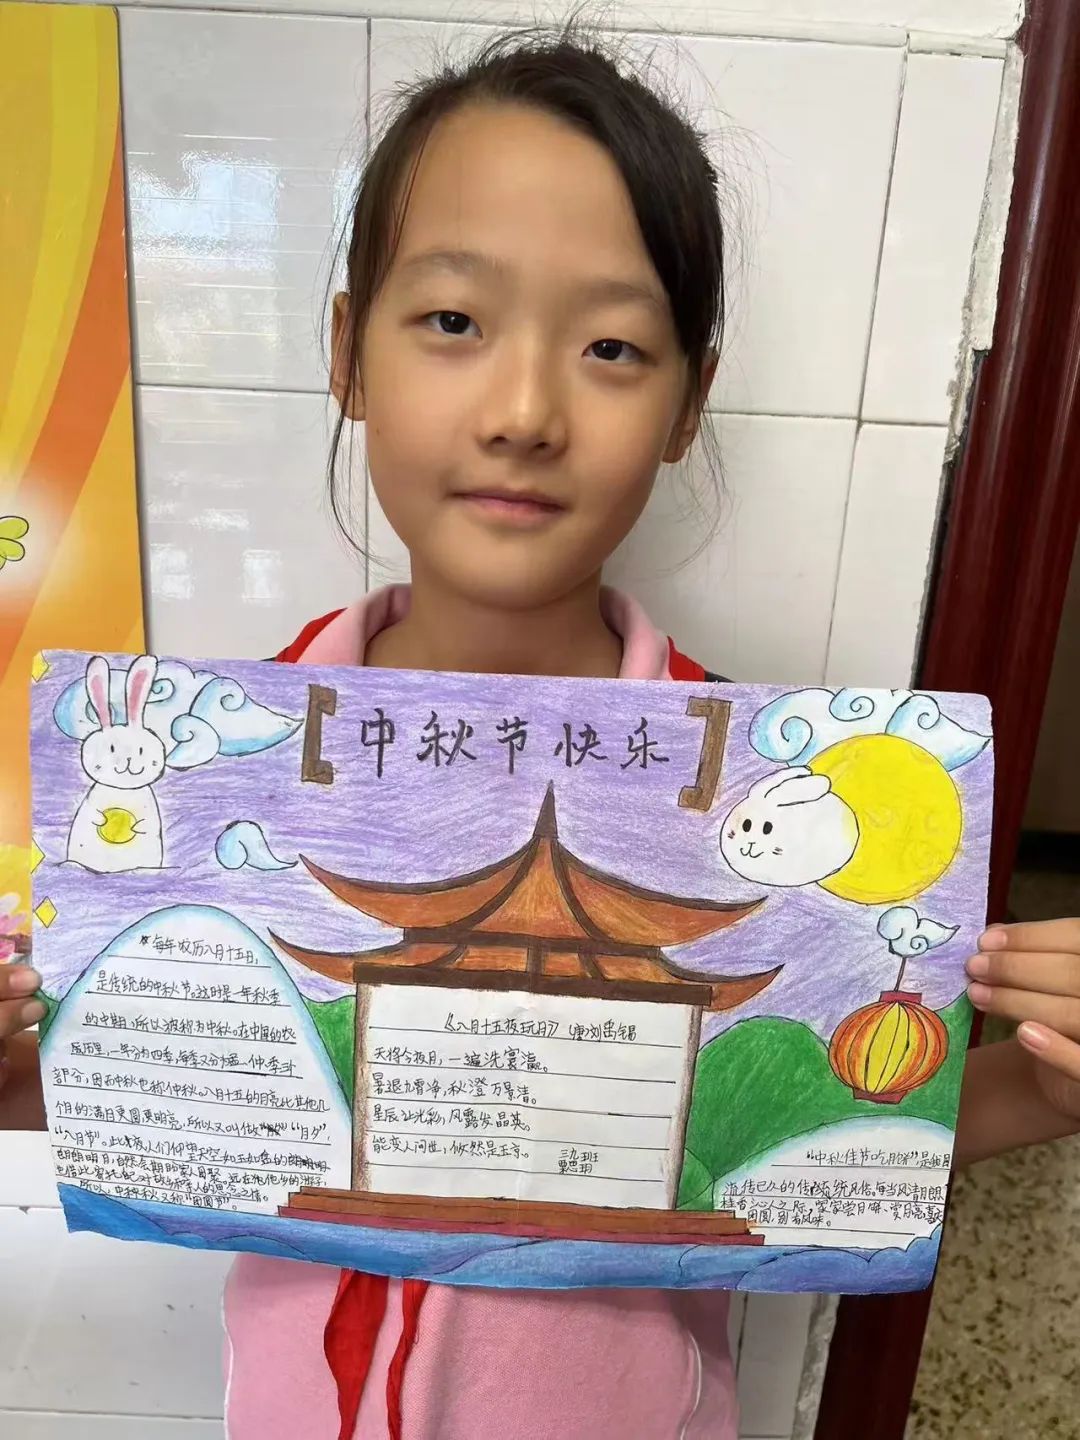 中秋节快乐
每年农历八月十五日,
是传统的中秋节。这时是一年秋季
的中期,所以被称为中秋。在中国的农
历里,一年分为四季,每季又分为孟、仲、季三
部分,因而中秋也称仲秋。八月十五的月亮比其他几
个月的满月更圆更明亮,所以又叫做“月夕”,
“八月节”。此夜人们仰望天空如玉如盘的
朗朗明月,自然会期盼家人团聚。远在他乡的游子,
也借此寄托自己对故乡和亲人的思念之情。
所以,中秋又称“团圆节”。
《八月十五夜玩月》唐刘禹锡
天将今夜月,一遍洗寰瀛。
暑退九霄净,秋澄万景清。
星辰让光彩,风露发晶英。
能变人间世,攸然是玉京。
三九班
“中秋佳节吃月饼”是我国
流传已久的传统风俗。每当风清月朗
桂香沁人之际,家家尝月饼、赏月亮喜庆
团圆,别有风味。